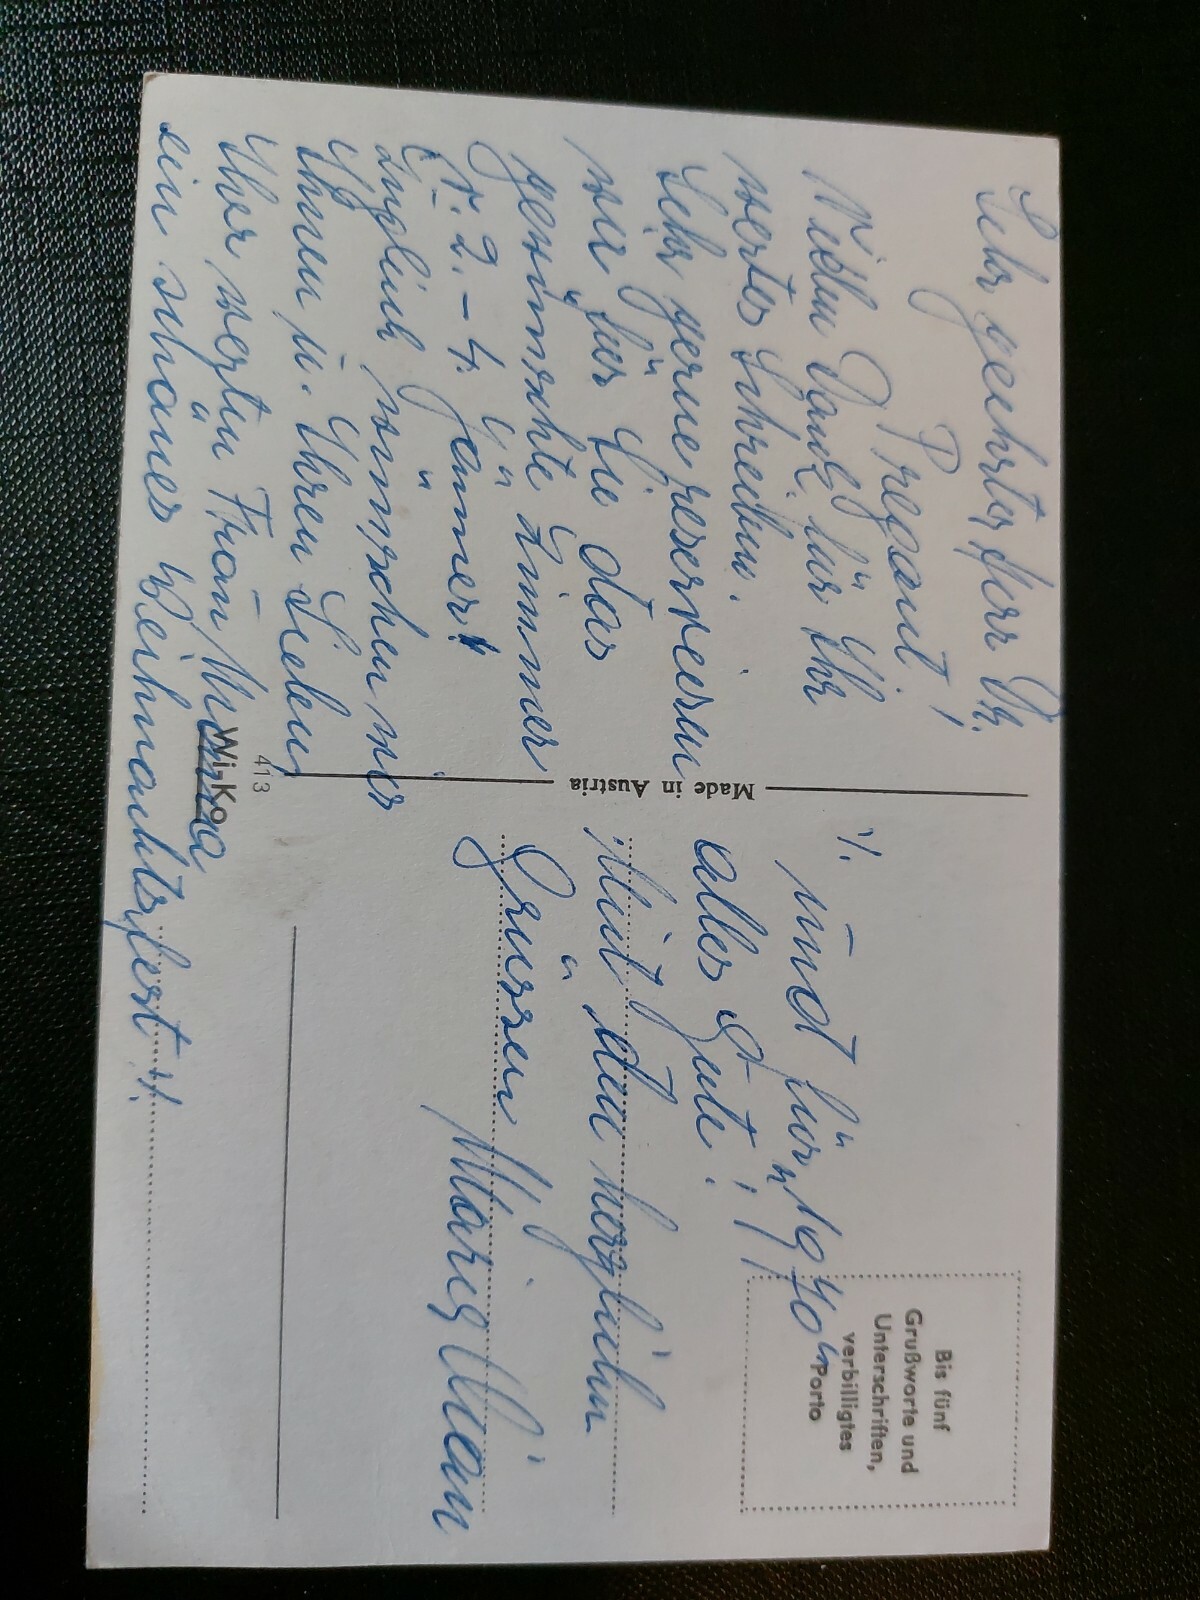 Sehr geehrter Herr Dr.
Pregant!
Vielen Dank für Ihr
wertes Schreiben.
Sehr gerne reservieren
wir für Sie das
gewünschte Zimmer
v. 2. - 4. Jänner!
Zugleich wünschen wir
Ihnen u. Ihren Lieben,
Ihrer werten Frau Mama
ein schönes Weihnachtsfest!
./.
und für "1970"
alles Gute!
Mit den herzlichen
Grüssen
Made in Austria
413
Wi-Ko
Bis fünf
Grußworte und
Unterschriften,
verbilligtes
Porto